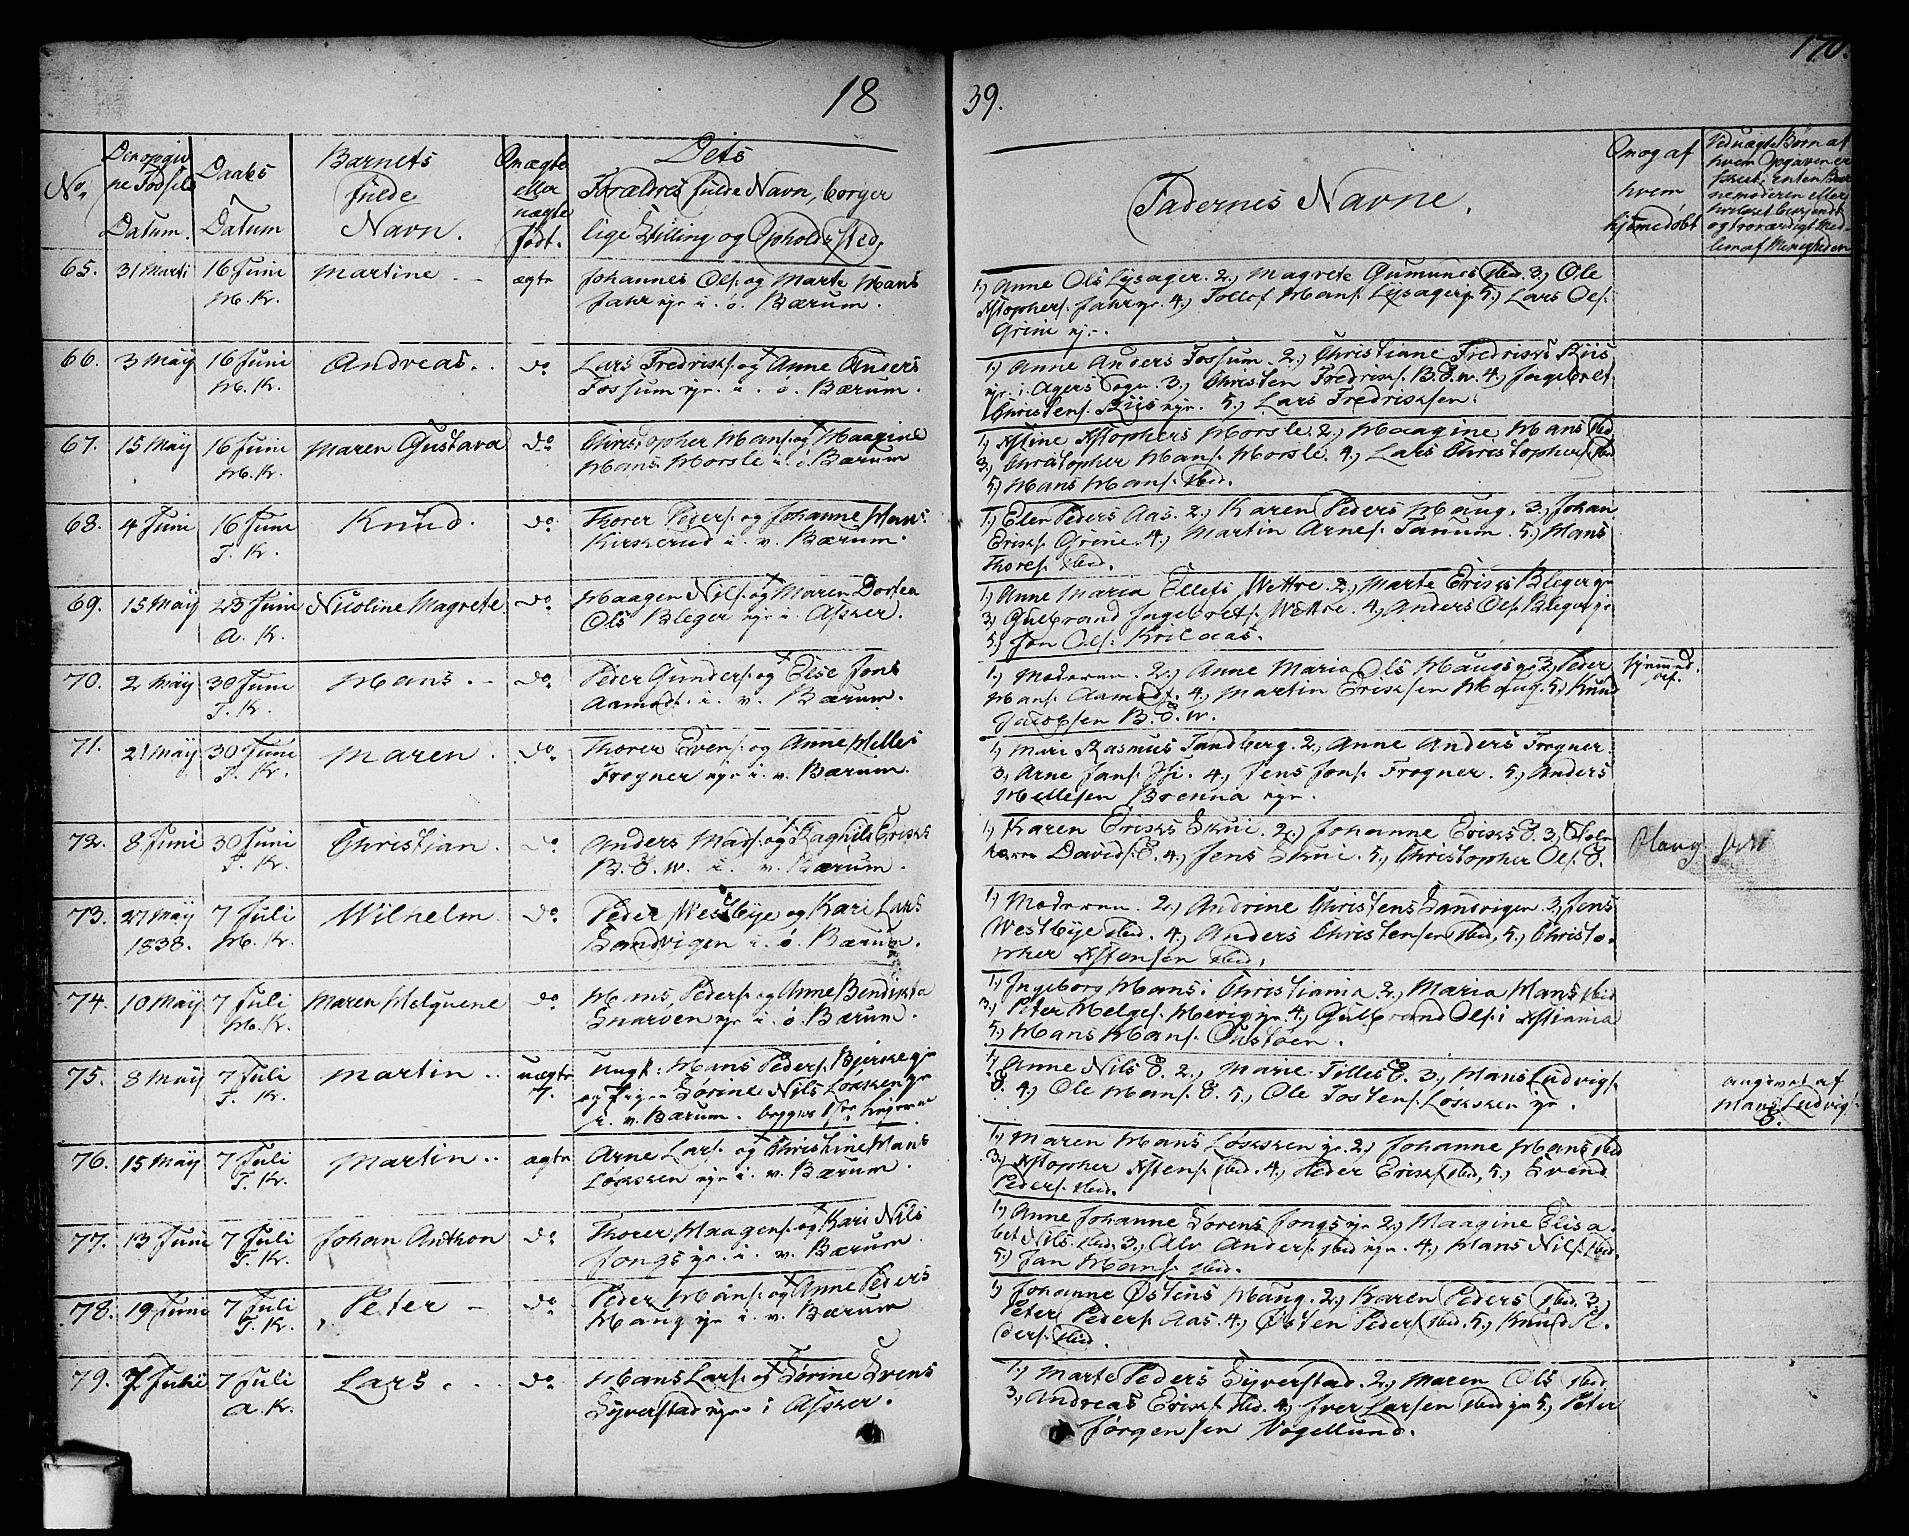 170.
18 39.
No.
Den opgiv
ne Fødsels
Datum.
Daabs
Datum
Barnets
fulde
Navn.
Om ægte
eller
uægte
født.
Dets
Forældres fulde Navn, borger
lige Stilling og Opholdssted.
Faddernes Navne.
Om og af
hvem
hjemedøbt
Ved uægte Børn af
hvem Opgaven er
skeet; Enten Bar
nemoderen eller
og troværdigt Med-
lem af Menigheden
65. 31 Marti 16 Juni Martine - - ægte Johannes Ols. og Marte Hans
H. Kr. Fahr eje i. ø. Bærum.
1) Anne Ols Lysager. 2) Magrete Gumunds ibid. 3) Ole
Xstophers. Fahr eje. 4) Tollof Hans. Lysager eje 5) Lars Ols.
Grini eje.
66. 3 May 16 Juni Andreas. . do Lars Fredriks. og Anne Anders
H. Kr. Fossum eje. i. ø. Bærum.
1) Anne Anders Fossum. 2) Christiane Fredriks Riis
eje. i Agers Sogn. 3) Christen Fredriks. B. E. w. 4) Ingebret
Christens. Riis eje. 5) Lars Fredriksen.
67. 15 May 16 Juni Maren Gustava do Christopher Hans. og Haagine
H. Kr. Hans Horsle i. ø. Bærum
1) Xstine Xstophers Horsle. 2) Haagine Hans ibid
3) Christopher Hans. Horsle. 4) Lars Christophers. ibid
5) Hans Hans. ibid.
68. 4 Juni 16 Juni Knud. do. Thorer Peders. og Johanne Hans.
T. Kr. Kirkerud i. v. Bærum.
1) Elen Peders Aas. 2) Karen Peders Haug. 3) Johan
Eriks. Grine. 4) Martin Arnes. Tanum. 5) Hans
Thores. ibid.
69. 15 May 23 Juni Nicoline Magrete do Haagen Nils. og Maren Dortea
A. Kr. Ols Bleger eje i. Asker.
1) Anne Maria Ellefs Wettre. 2) Marte Eriks Bleger eje
3) Gulbrand Ingebrets. Wettre. 4) Anders Ols. Bleger eje
5) Jon Ols.
70. 2 May 30 Juni Hans. - do Peder Gunders. og Else Jens
T. Kr. Aamodt. i. v. Bærum.
1) Moderen. 2) Anne Maria Ols Haugs eje 3) Peder
Hans. Aamodt. 4) Martin Eriksen Haug. 5) Knud
Jacobsen B. E. w.
hjemmed.
71. 21 May 30 Juni Maren. do. Thorer Evens. og Anne Helles
T. Kr. Frogner eje i. v. Bærum.
1) Mari Rasmus Tandberg. 2) Anne Anders Frogner.
3) Arne Jans. 4) Jens Jons. Frogner. 5) Anders
Hellesen Brenna eje.
72. 8 Juni 30 Juni Christian. do Anders Mads. og Raghild Eriks
T. Kr. B. E. w. i. v. Bærum.
1) Karen Eriks Skui. 2) Johanne Eriks E. 3)
Davids. E. 4) Jens Skui. 5) Christopher Ols. E.
73. 27 May 7 Juli Wilhelm. do. Peder Westbye og Kari Lars
1838. H. Kr. Sandvigen i. ø. Bærum.
1) Moderen. 2) Andrine Christens Sandvigen 3) Jens
Westbye ibid. 4) Anders Christensen ibid, 5) Christo-
pher Xstensen ibid.
74. 10 May 7 Juli Maren Helguene do Hans Peders. og Anne Bendikta
H. Kr. Snaroen eje i. ø. Bærum.
1) Ingeborg Hans i Christiania. 2) Maria Hans ibid
3) Peter Helges. Hevig eje. 4) Gulbrand Ols. i Xstiania
5) Hans Hans. Oustøen.
75. 8 May 7 Juli Martin. . uægte Ungk: Hans Peders. Bjerke eje
T. Kr. 7. og Pigen Sørine Nils Løkken eje
i. v. Bærum. begges 1ste Lejermaal
1) Anne Nils E. 2) Marie Tilles E. 3) Hans Ludvigs.
E. 4) Ole Hans. E. 5) Ole Jostens. Løkken eje.
angivet af
Hans Ludvigs.
E.
76. 15 May 7 Juli Martin. . ægte Arne Lars. og Christine Hans
T. Kr. Løkken eje i. v. Bærum.
1) Maren Hans Løkken eje. 2) Johanne Hans ibid
3) Xstopher Xstens. ibid. 4) Peder Eriks. ibid, 5) Svend
Peders. ibid.
77. 13 Juni 7 Juli Johan Anthon do Thorer Haagens. og Kari Nils
T. Kr. Jongs eje. i. v. Bærum.
1) Anne Johanne Sørens Jongs eje 2) Haagine Elisa-
bet Nils. ibid. 3) Alv Anders. ibid eje. 4) Hans Nils. ibid.
5) Jan Hans. ibid.
78. 19 Juni 7 Juli Peter - do. Peder Hans. og Anne Peders
T. Kr. Haug eje i. v. Bærum
1) Johanne Østens Haug. 2) Karen Peders ibid. 3)
Peter Peders. Aas. 4) Østen Peders. ibid. 5) Knud P.
ders. ibid.
79. 7 Juli 7 Juli Lars. . do. Hans Lars. og Sørine Svens
A. Kr. Syverstad eje i Asker.
1) Marte Peders Syverstad. 2) Maren Ols ibid.
3) Andreas Eriks. ibid. 4) Iver Larsen ibid eje 5) Peter
Jørgensen Vogellund.